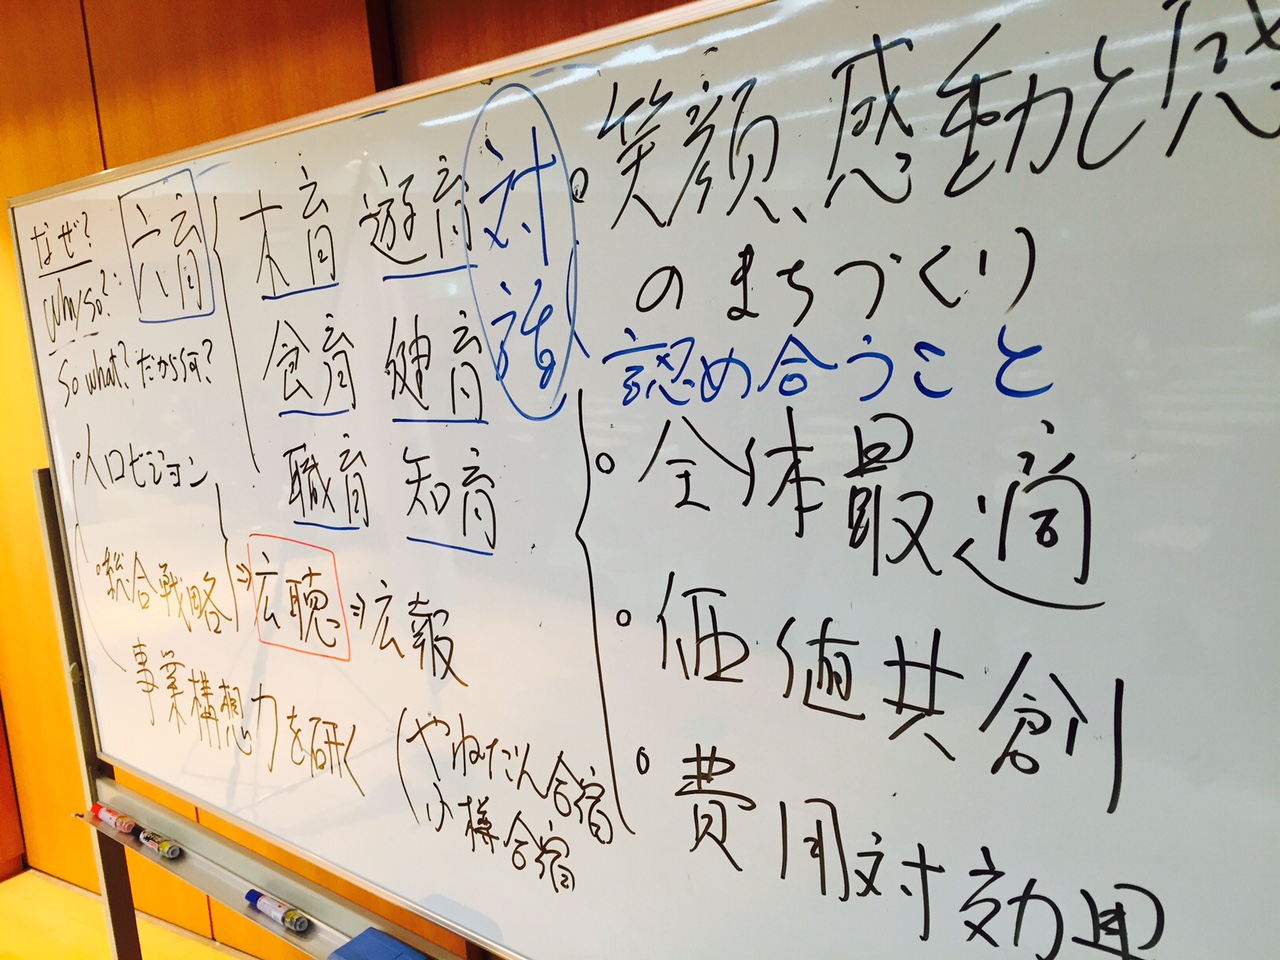 なぜ?
Why/so?:
So what? だから何?
六育
木育 遊育
食育 健育
職育 知育
対話
・人口ビジョン
・総合戦略 ⇒ 広聴 ⇒ 広報
事業構想力を研く
(やねだん合宿
小樽合宿
・笑顔、感動と感
のまちづくり
認め合うこと
・全体最適
・価値共創
・費用対効果